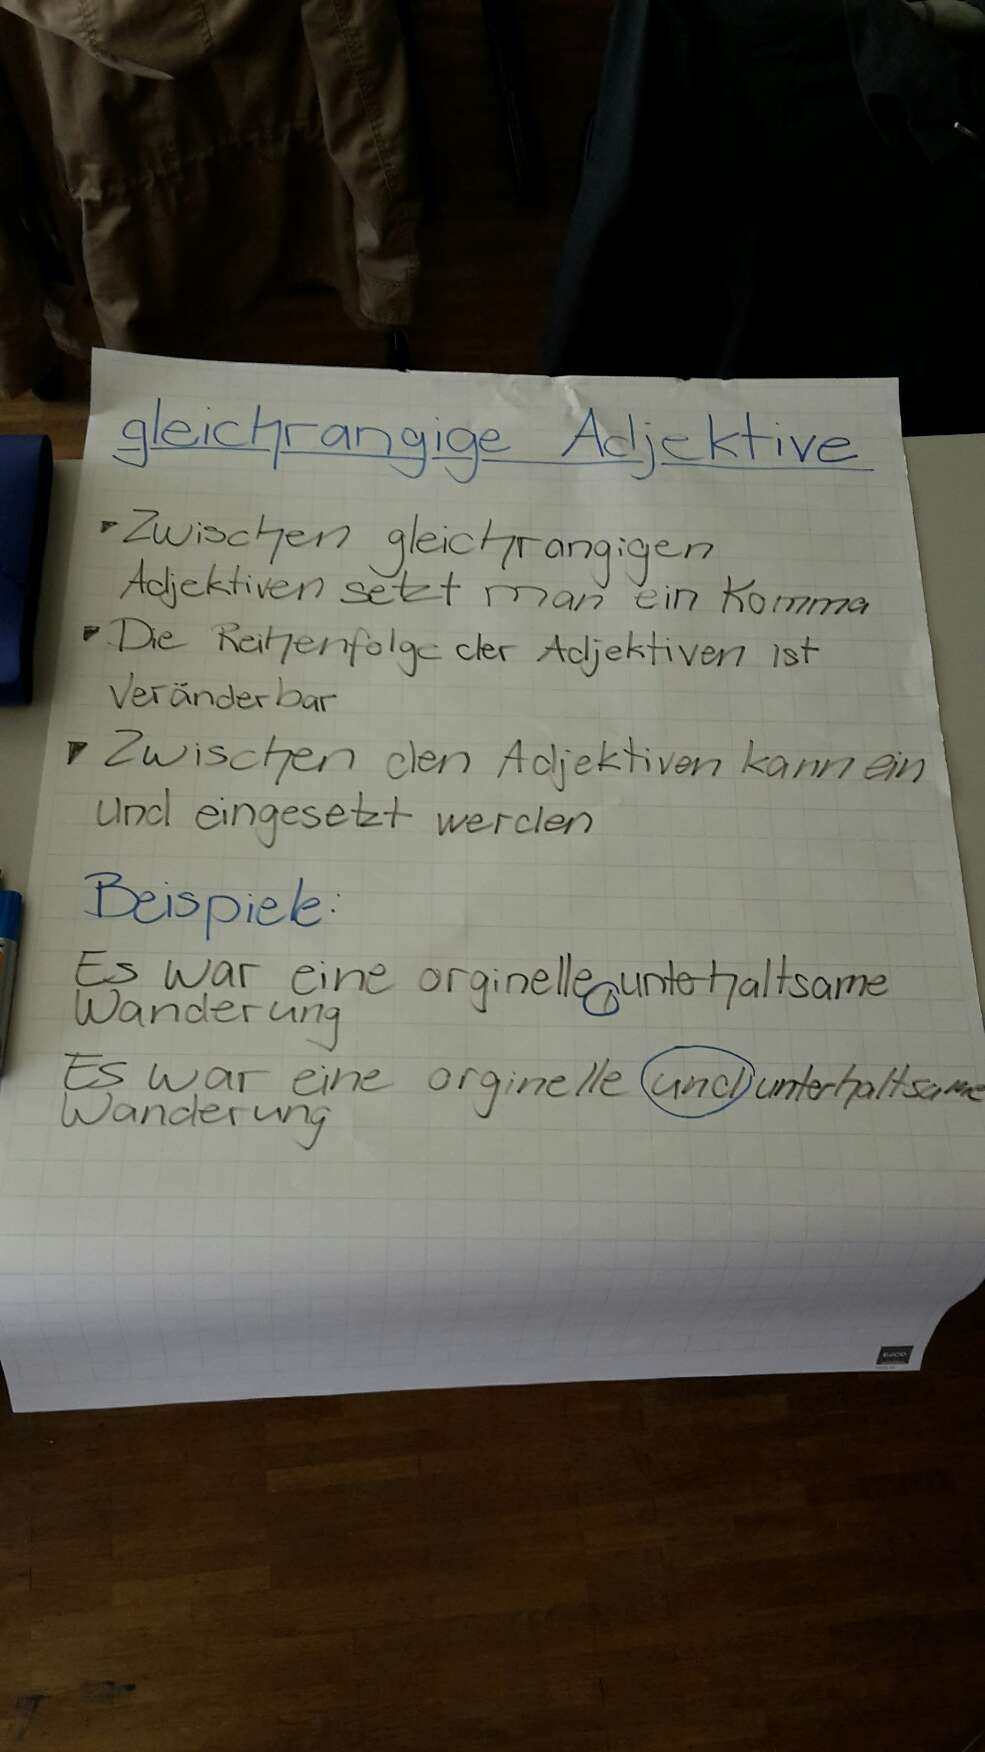 gleichrangige Adjektive
Zwischen gleichrangigen
Adjektiven setzt man ein Komma
Die Reihenfolge der Adjektiven ist
veränderbar
Zwischen den Adjektiven kann ein
und eingesetzt werden
Beispiele:
Es war eine orginelle, unterhaltsame
Wanderung
Es war eine orginelle und unterhaltsame
Wanderung